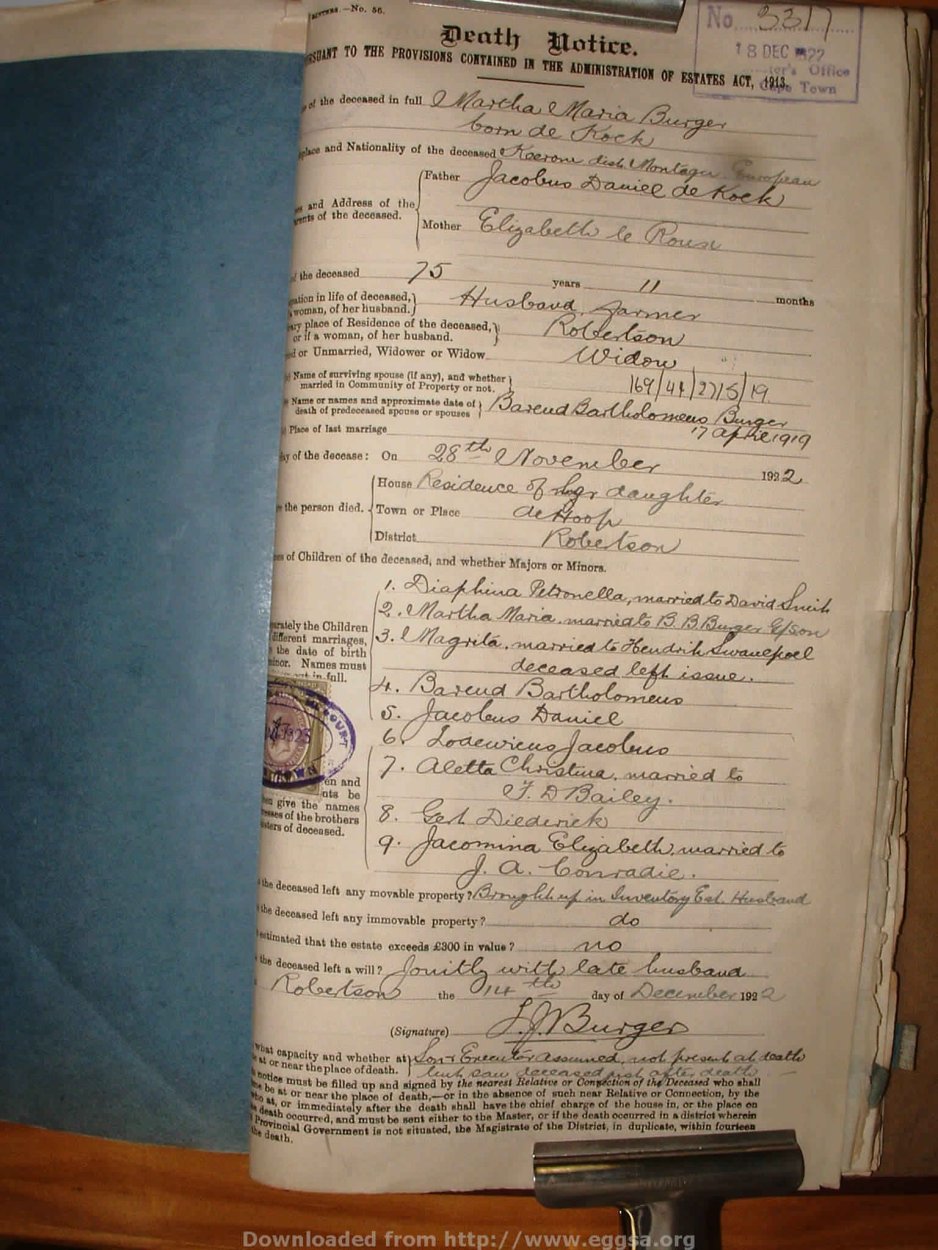 No. 56.
No. 3317
18 DEC 1922
Office
Cape Town
Death Notice.
PURSUANT TO THE PROVISIONS CONTAINED IN THE ADMINISTRATION OF ESTATES ACT, 1913.
of the deceased in full Martha Maria Burger
born de Kock
place and Nationality of the deceased dist Montagu European
Father Jacobus Daniel de Kock
and Address of the
of the deceased.
Mother Elizabeth le Roux
the deceased 75 years 11 months
in life of deceased,
woman, of her husband. Husband farmer
place of Residence of the deceased,
or if a woman, of her husband. Robertson
or Unmarried, Widower or Widow Widow
Name of surviving spouse (if any), and whether
married in Community of Property or not. 169/44/27/5/19
Name or names and approximate date of
death of predeceased spouse or spouses Barend Bartholomeus Burger
17 April 1919
Place of last marriage
of the decease: On 28th November 1922
House Residence of her daughter
the person died. Town or Place de Hoop
District Robertson
of Children of the deceased; and whether Majors or Minors.
1. Diaphina Petronella, married to David Smit
2. Martha Maria married to B. B. Burger G/son
the Children
different marriages,
3. Magrita, married to Hendrik Swanepoel
the date of birth
minor. Names must
deceased left issue.
in full.
4. Barend Bartholomeus
5. Jacobus Daniel
6. Lodewicus Jacobus
7. Aletta Christina, married to
and
be
J. D Bailey.
give the names
of the brothers
8. Gert Diederick
of deceased.
9. Jacomina Elizabeth, married to
J. A. Conradie.
the deceased left any movable property? Brought up in Inventory Est. Husband
the deceased left any immovable property? do
estimated that the estate exceeds £300 in value? no
the deceased left a will? Jointly with late husband
Robertson the 14th day of December 1922
(Signature) L. J. Burger
what capacity and whether at
at or near the place of death. Son & Executor assumed, not present at death
but saw deceased just after death
notice must be filled up and signed by the nearest Relative or Connection of the Deceased who shall
be at or near the place of death,—or in the absence of such near Relative or Connection, by the
who at, or immediately after the death shall have the chief charge of the house in, or the place on
death occurred, and must be sent either to the Master, or if the death occurred in a district wherein
Provincial Government is not situated, the Magistrate of the District, in duplicate, within fourteen
the death.
Downloaded from http://www.eggsa.org